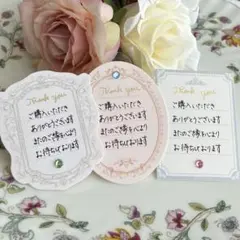 Thank you
ご購入いただき
ありがとうございます
またのご縁を心より
お待ちしております
Thank you
ご購入いただき
ありがとうございます
またのご縁を心より
お待ちしております
Thank you
ご購入いただき
ありがとうございます
またのご縁を心より
お待ちしております